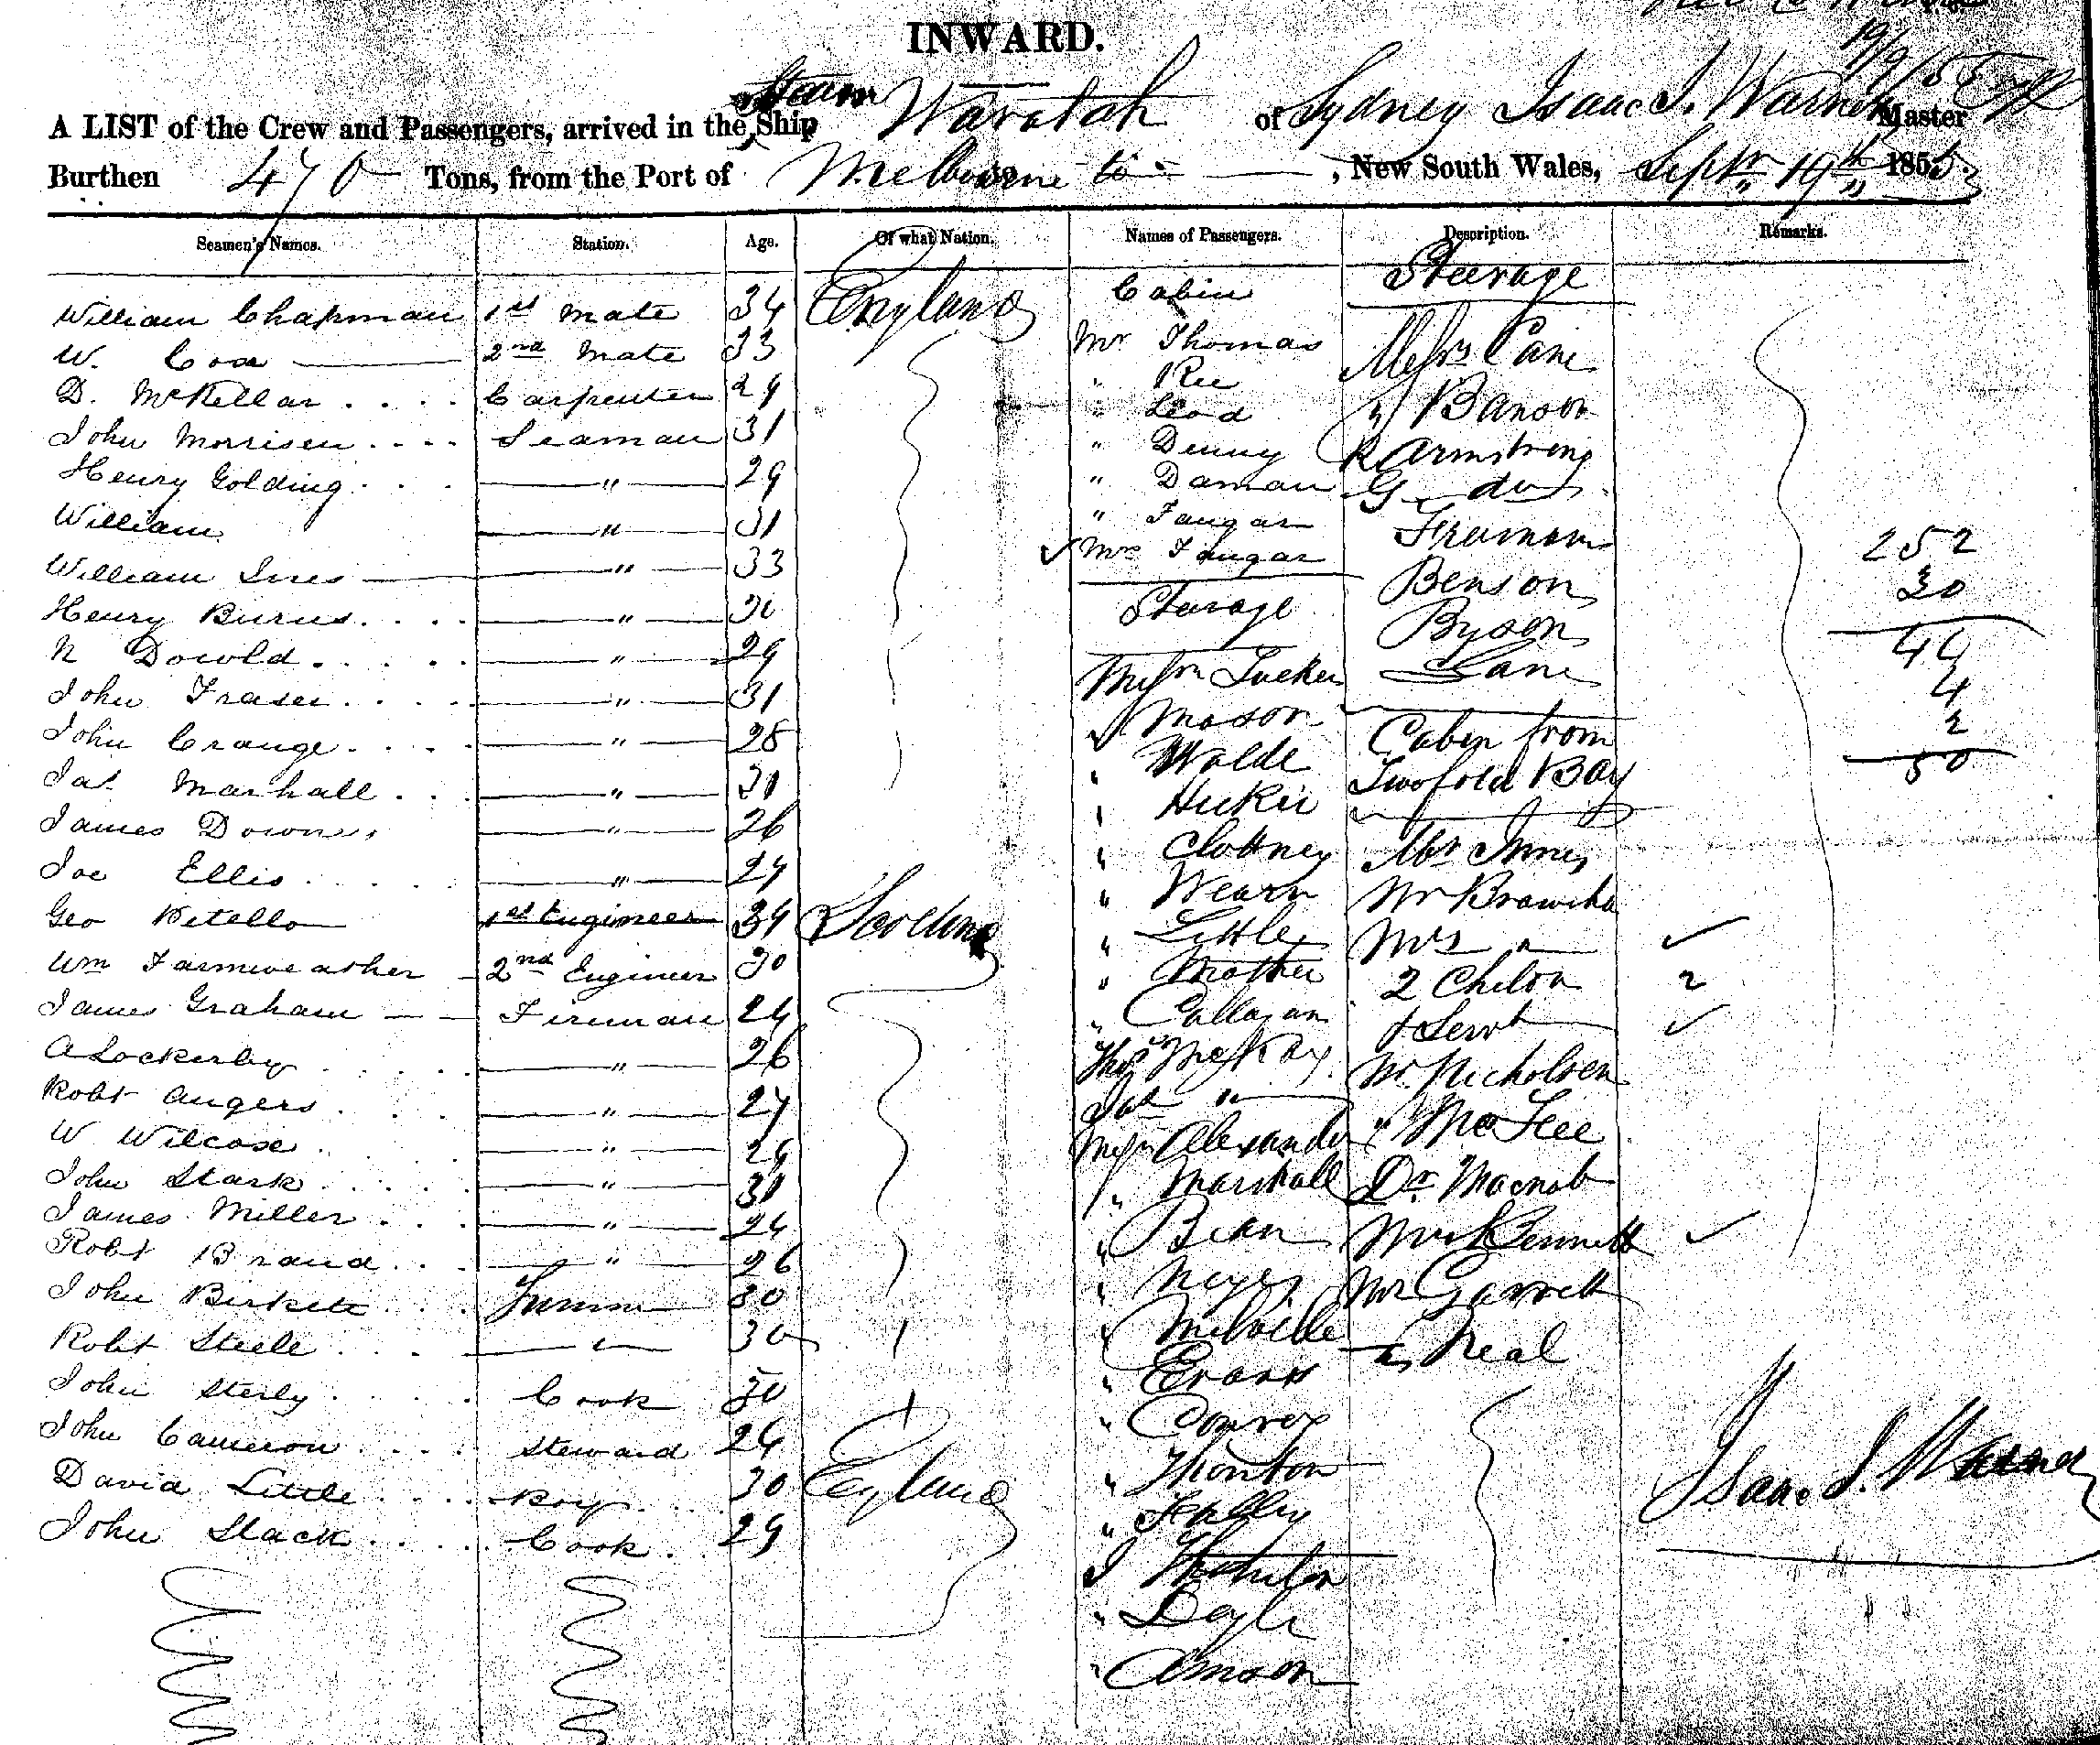 INWARD.
19/9/55
A LIST of the Crew and Passengers, arrived in the Steam Ship Waratah of Sydney Isaac J. Warner Master
Burthen 470 Tons, from the Port of Melbourne to , New South Wales, Septr 19th 1855
Seamen's Names. Station. Age. Of what Nation. Names of Passengers. Description. Remarks.
William Chapman 1st Mate 34 England Cabin Steerage
W. Cox 2nd Mate 33 Mr Thomas Messrs Cane
D. McKellar Carpenter 29 " Ree
John Morrisen Seaman 31 " Leod " Banson
Henry Golding " 29 " Denny R Armstrong
William " 31 " Daman G do
William Ines " 33 " Faugar Freeman
Mrs Faugar Benson 252
Henry Burns " 30 Steerage Byson 30
N Dowold " 29 Messrs Tucker Lane 44
John Fraser " 31 " Mason Cabin from 4
John Crange " 28 " Walde Twofold Bay 2
Jas Marshall " 31 " Huckie 50
James Downs " 26 " Clottney Mr Innes
Joe Ellis " 24 " Wearn Mr
Geo Ketello 1st Engineer 34 Scotland " Little Mrs "
Wm Farmweather 2nd Engineer 30 " Mother 2 Children 2
James Graham Fireman 24 " Callagan & Servt
A Lockerby " 26 Thos McKay Mr Nicholson
Robt Angers " 27 Jas " " McFee
W Wilcose " 26 Messrs Alexander Dr Macnab
John Stark " 31 " Marshall
James Miller " 24 " Bean Mrs Bennett
Robt Brand " 26 " Meyer Mr Garrett
John Birkett 30 " Melville " Neal
Robt Steele " 30 " Evans
John Sterly Cook 30 " Conroy
John Cameron Steward 24 " Thornton
David Little Boy 30 England " Kelly
John Slack Cook 29 J Isaac J. Warner
" Doyle
" Amson